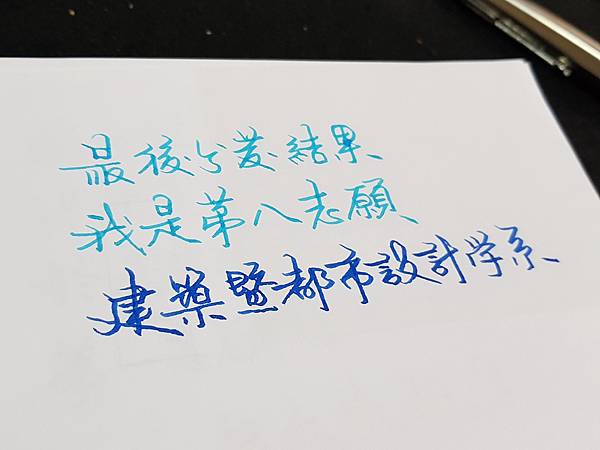 最後分發結果
我是第八志願
建築暨都市設計学系